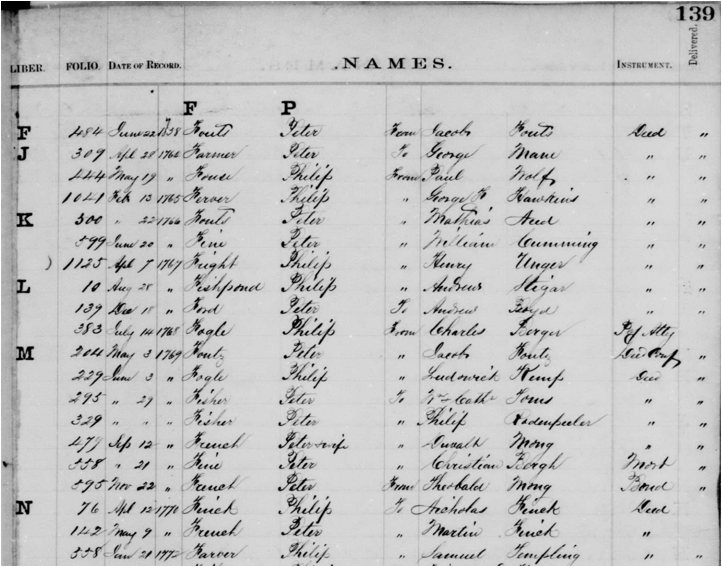 139
LIBER. FOLIO. DATE OF RECORD. NAMES. INSTRUMENT. Delivered.
F P
F 484 June 22 1738 Fouts Peter From Jacob Fouts Deed "
J 309 Apl 28 1764 Farmer Peter To George " "
444 May 19 " House Philip From Paul Wolf " "
1041 Feb 13 1765 Ferver Philip " George F Hawkins " "
K 300 " 22 1766 Fouts Peter " Mathias " "
599 June 20 " Fine Peter " William Cumming " "
1125 Apl 7 1767 Feight Philip " Henry Unger " "
L 10 Aug 28 " Fishpond Philip " Andrew " "
139 Dec 18 " Ford Peter To Andrew " "
383 July 14 1768 Fogle Philip From Charles Berger "
M 204 May 3 1769 Foutz Peter " Jacob Foutz Ded Conf "
229 June 3 " Fogle Philip " Ludowick Kemp Deed "
295 " 29 " Fisher Peter To Wm Cath: Toms " "
329 " " " Fisher Peter " Philip " "
477 Sep 12 " French Peter & wife " Duvalt Mong " "
558 " 21 " Fine Peter " Christian Bergh Mort "
595 Nov 22 " French Peter From Theobald Mong Bond "
N 76 Apl 12 1770 Finck Philip To Nicholas Finck Deed "
142 May 9 " French Peter " Martin Finck " "
558 Jan 21 1772 Farver Philip " Samuel Templing " "